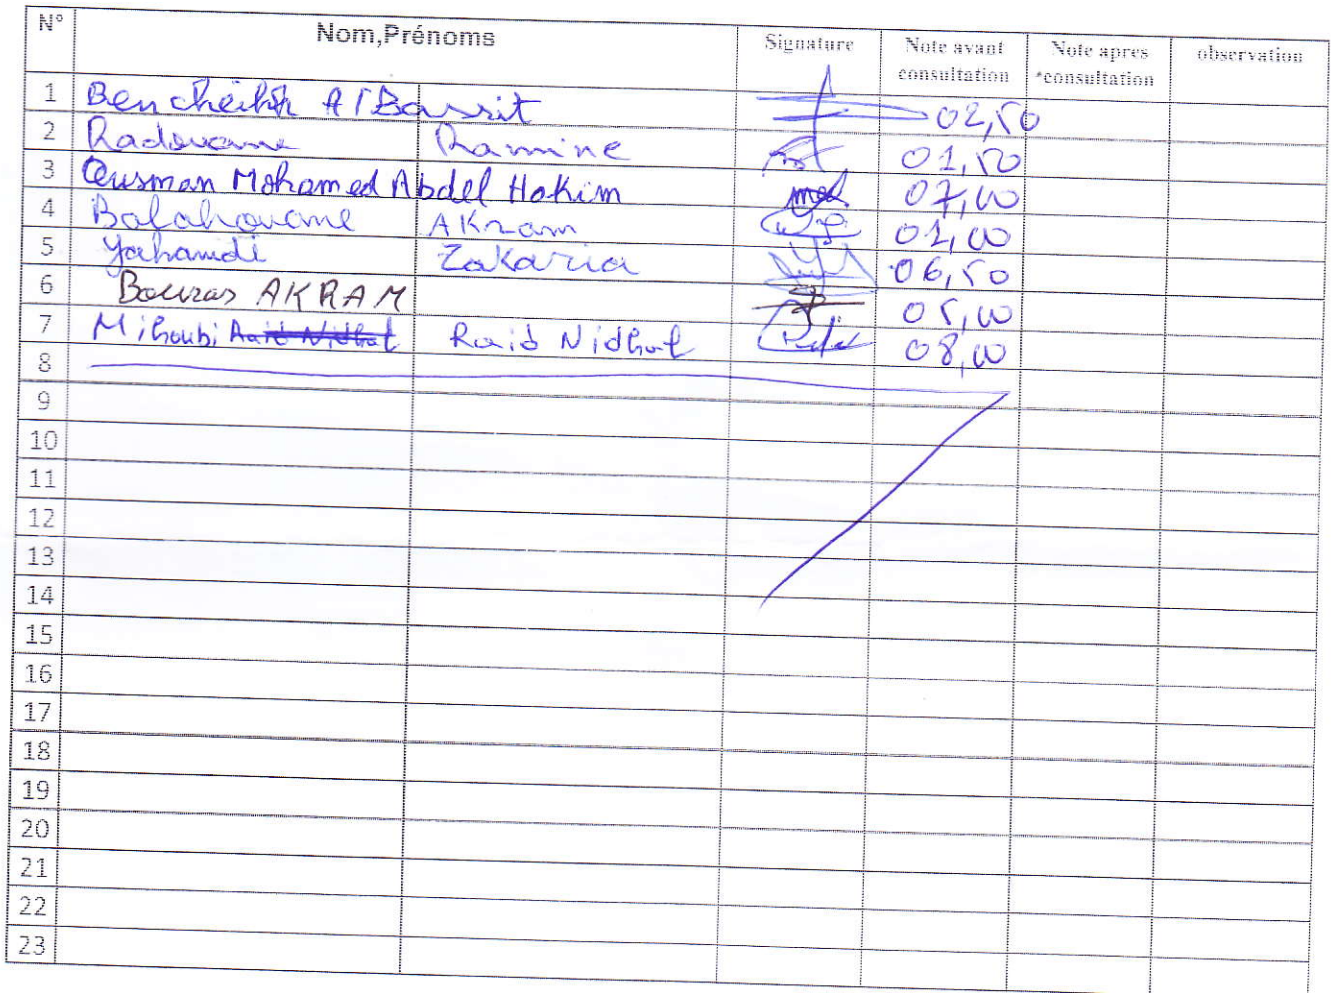 N° Nom,Prénoms Signature Note avant consultation Note apres *consultation observation
1 Bencheikh Al Bassit 02,50
2 Radouane Ramine 01,50
3 Ousman Mohamed Abdel Hakim 07,00
4 Balahouane AKram 01,00
5 Yahamdi Zakaria 06,50
6 Bouras AKRAM 05,00
7 Mihoubi Raid Nidhat Raid Nidhal 08,00
8
9
10
11
12
13
14
15
16
17
18
19
20
21
22
23